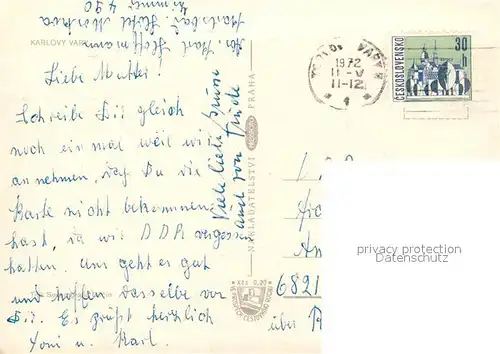 Ing. Karl Hoffmann
Karlsbad Hotel Moskva
Zimmer 420
KARLOVY VARY
Liebe Mutter!
Schreibe Dir gleich
noch ein mal weil wir
annehmen, daß Du die
Karte nicht bekommen
hast, da wir DDR vergessen
hatten. Uns geht es gut
und hoffen dasselbe von
Dir. Es grüßt herzlich
Toni u. Karl.
Viele liebe Grüsse
auch von
NAKLADATELSTVÍ PRAHA
Kčs 0,20
KARLOVY VARY
1972
11-V
11-12
1
ČESKOSLOVENSKO
30 h
6821
über
privacy protection
Datenschutz